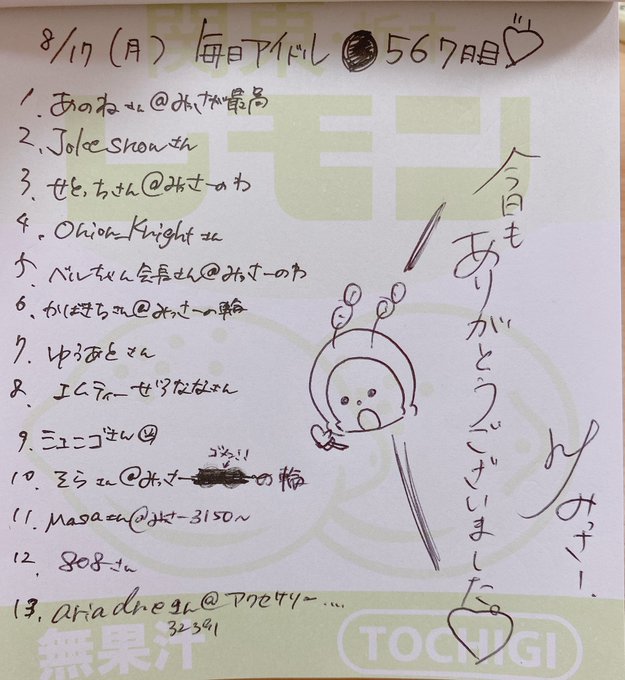 8/17(月) 毎日アイドル 567日目♡
1. あのねさん@みっさが最高
2. Jolee snowさん
3. せとっちさん@みっさーのわ
4. Onion_Knightさん
5. べルちゃん会長さん@みっさーのわ
6. かばきちさん@みっさーの輪
7. ゆうあとさん
8. エムティーぜろななさん
9. ミュニゴさん
ゴメン!!
10. そらさん@みっさーの輪
11. Masaさん@みさー3150〜
12. 808さん
13. ariadneさん@アクセサリー....
32391
今日も
ありがとうございました。♡
みっさー.
関東・栃木
レモン
無果汁
TOCHIGI